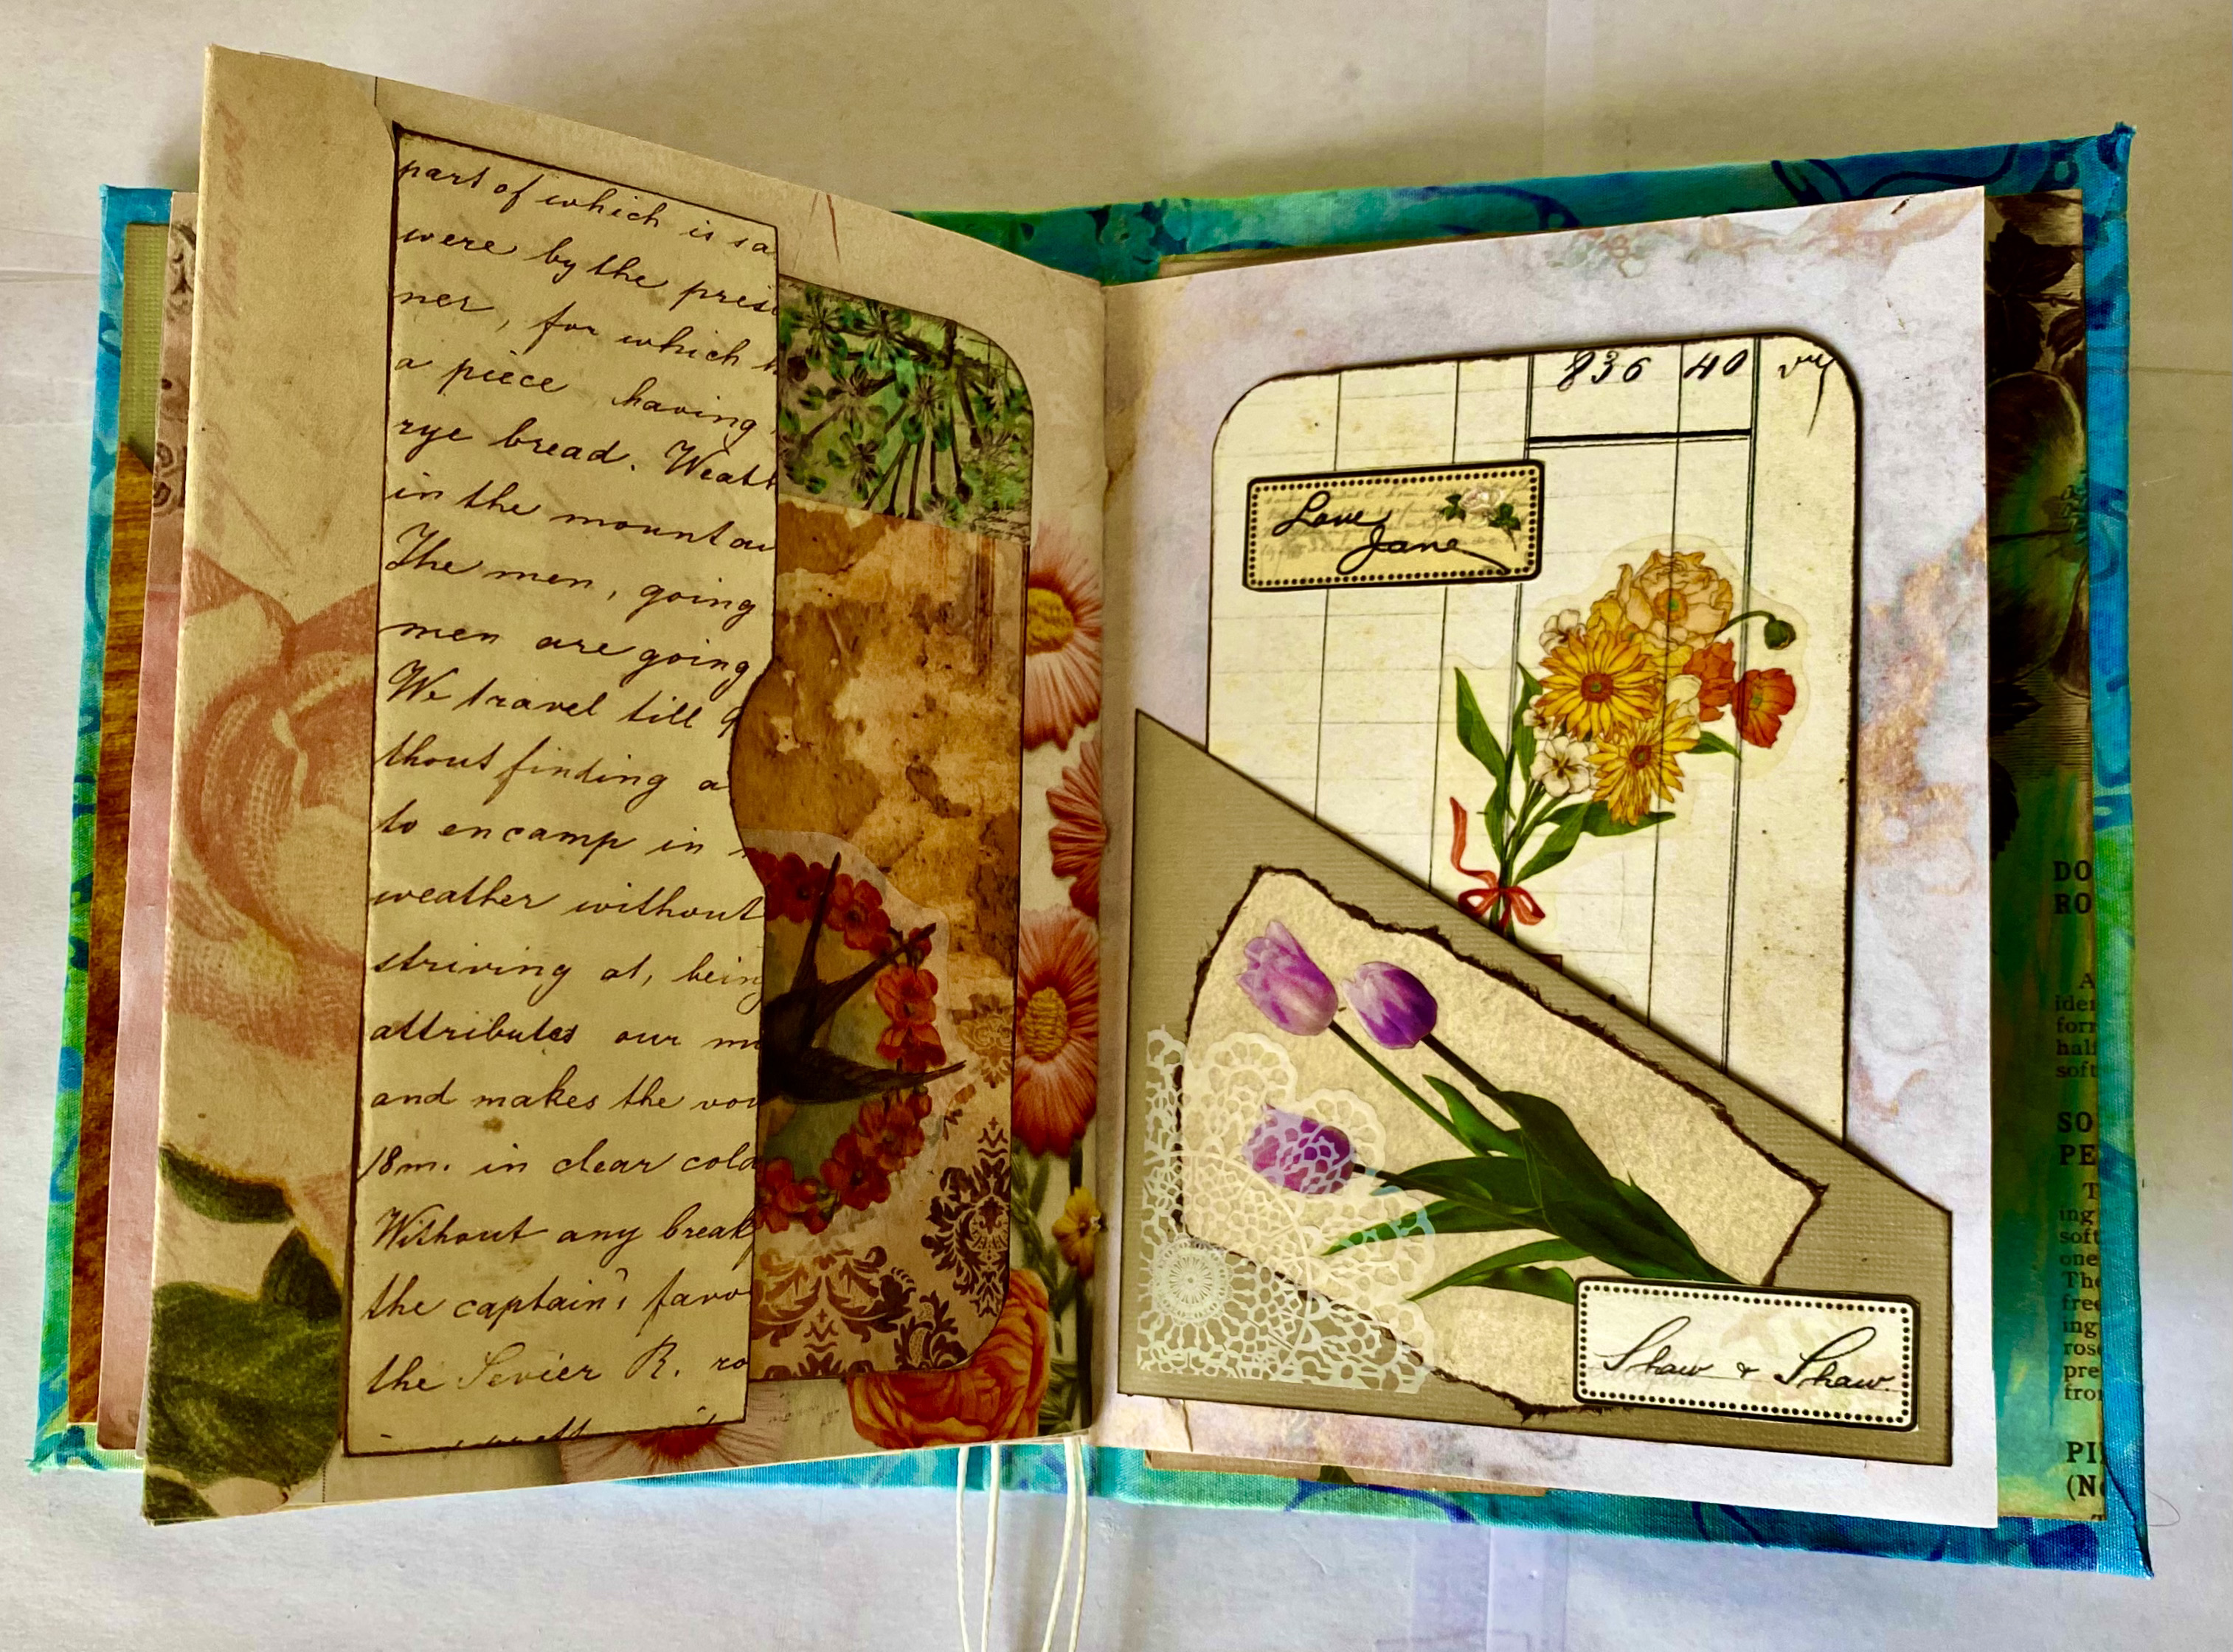 part of which is sa
were by the pres
ner, for which
a piece having
rye bread. Weat
in the mountai
The men, going
men are going
We travel till
thout finding a
to encamp in
weather without
striving at, being
attributes our
and makes the
18m. in clear cold
Without any break
the captain's favo
the Sevier R. ro
836 40
Love
Jane
Shaw & Shaw.
DO
RO
A
iden
form
half
soft
SO
PE
T
ing
soft
one
The
free
ing
rose
pre
fro
PI
(N